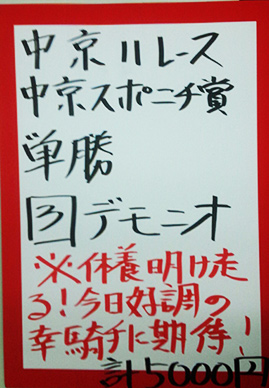 中京11レース
中京スポニチ賞
単勝
3デモニオ
※休養明け走
る!今日好調の
幸騎手に期待!
計5000円